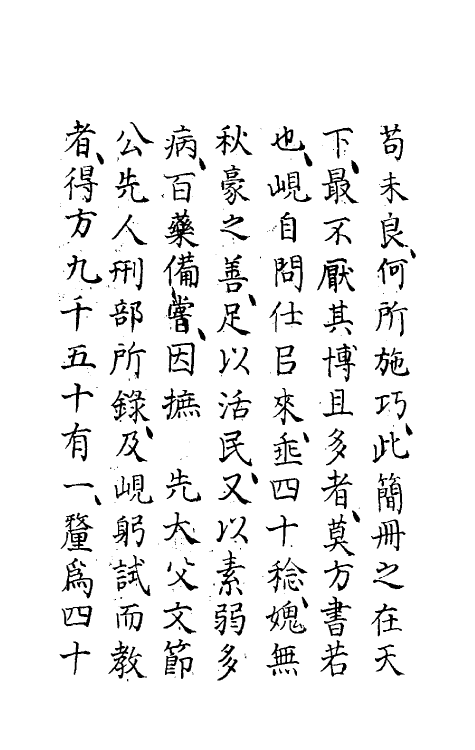 苟未良、何所施巧、此簡冊之在天
下、最不厭其博且多者、莫方書若
也、峴自問仕㠯來、垂四十稔、媿無
秋豪之善、足以活民、又以素弱多
病、百藥備嘗、因摭 先大父文節
公先人刑部所錄、及峴躬試而教
者、得方九千五十有一、釐爲四十